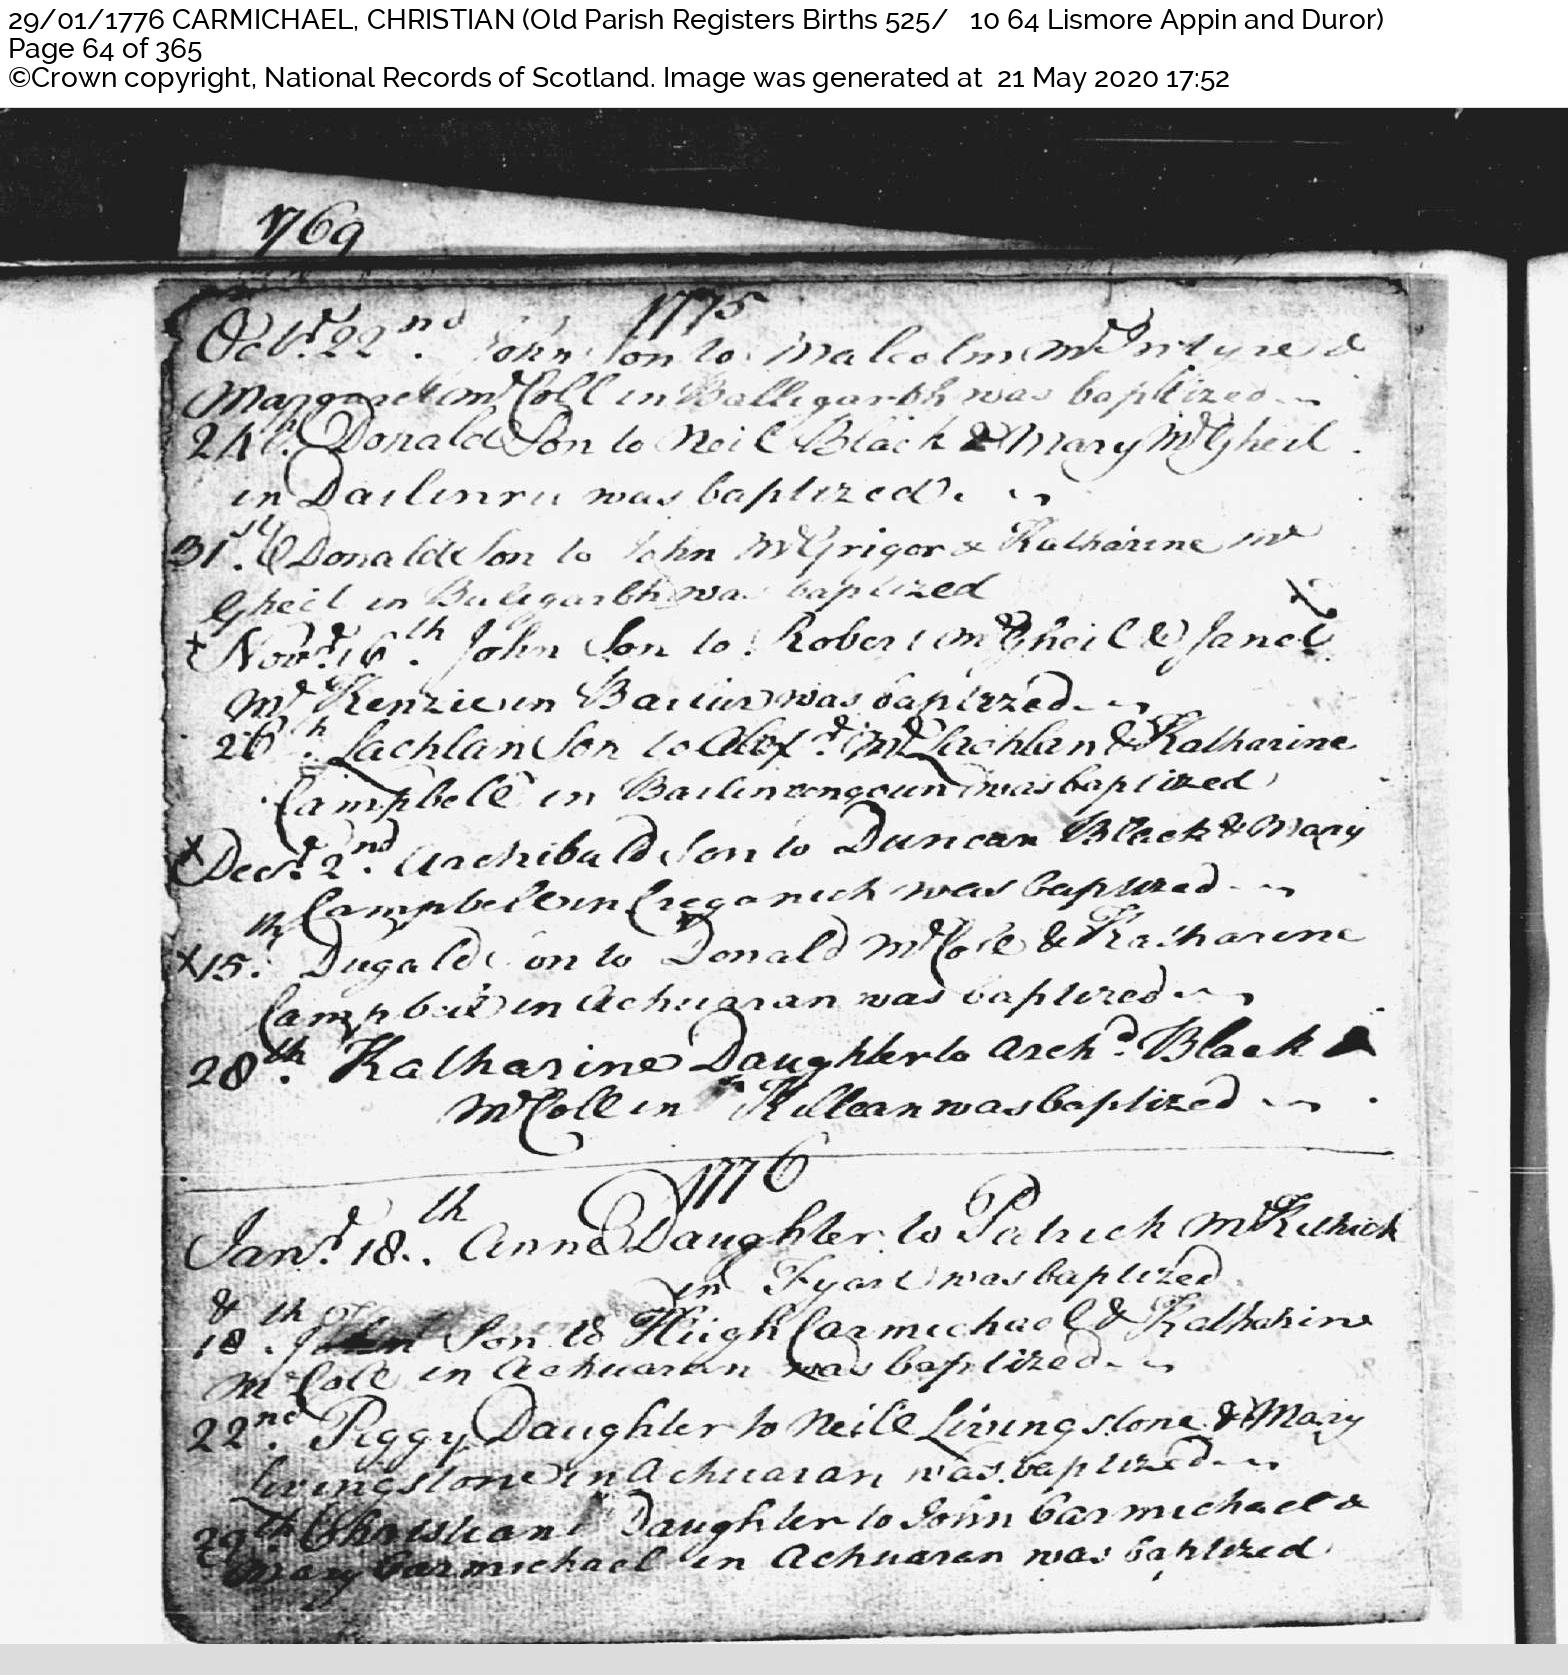 29/01/1776 CARMICHAEL, CHRISTIAN (Old Parish Registers Births 525/ 10 64 Lismore Appin and Duror)
Page 64 of 365
©Crown copyright, National Records of Scotland. Image was generated at 21 May 2020 17:52
1769
1775
Octr. 22nd. John Son to Malcolm McIntyre &
Margaret McColl in Balligarbh was baptized
24th. Donald Son to Neil Black & Mary McGheil
in Dailinru was baptized.
31st. Donald Son to John McGrigor & Katharine Mc
Gheil in Baligarbh was baptized
Novr. 16th. John Son to Robert McGheil & Janet
McKenzie in was baptized
26th. Lachlan Son to Alexr. McLachlan & Katharine
Campbell in was baptized
Decr. 2nd. Archibald Son to Duncan Black & Mary
Campbell in Creganich was baptized
15th. Dugald Son to Donald McCole & Katharine
Campbell in Achuaran was baptized
28th. Katharine Daughter to Archd. Black &
McColl in Killean was baptized
1776
Janr. 18th. Anne Daughter to Patrick McKichrich
& in Fyart was baptized
18th. John Son to Hugh Carmichael & Katharine
McColl in Achuaran was baptized
22nd. Peggy Daughter to Neill Livingstone & Mary
Livingstone in Achuaran was baptized
29th Christian Daughter to John Carmichael &
Mary Carmichael in Achuaran was baptized